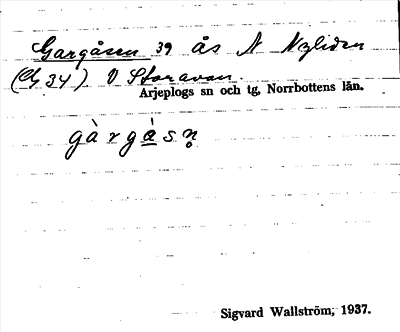 Gargåsen 39 ås N Nyliden
(Ch 34) V Storavan.
Arjeplogs sn och tg, Norrbottens län.
gàrgå̀sn̥
Sigvard Wallström, 1937.